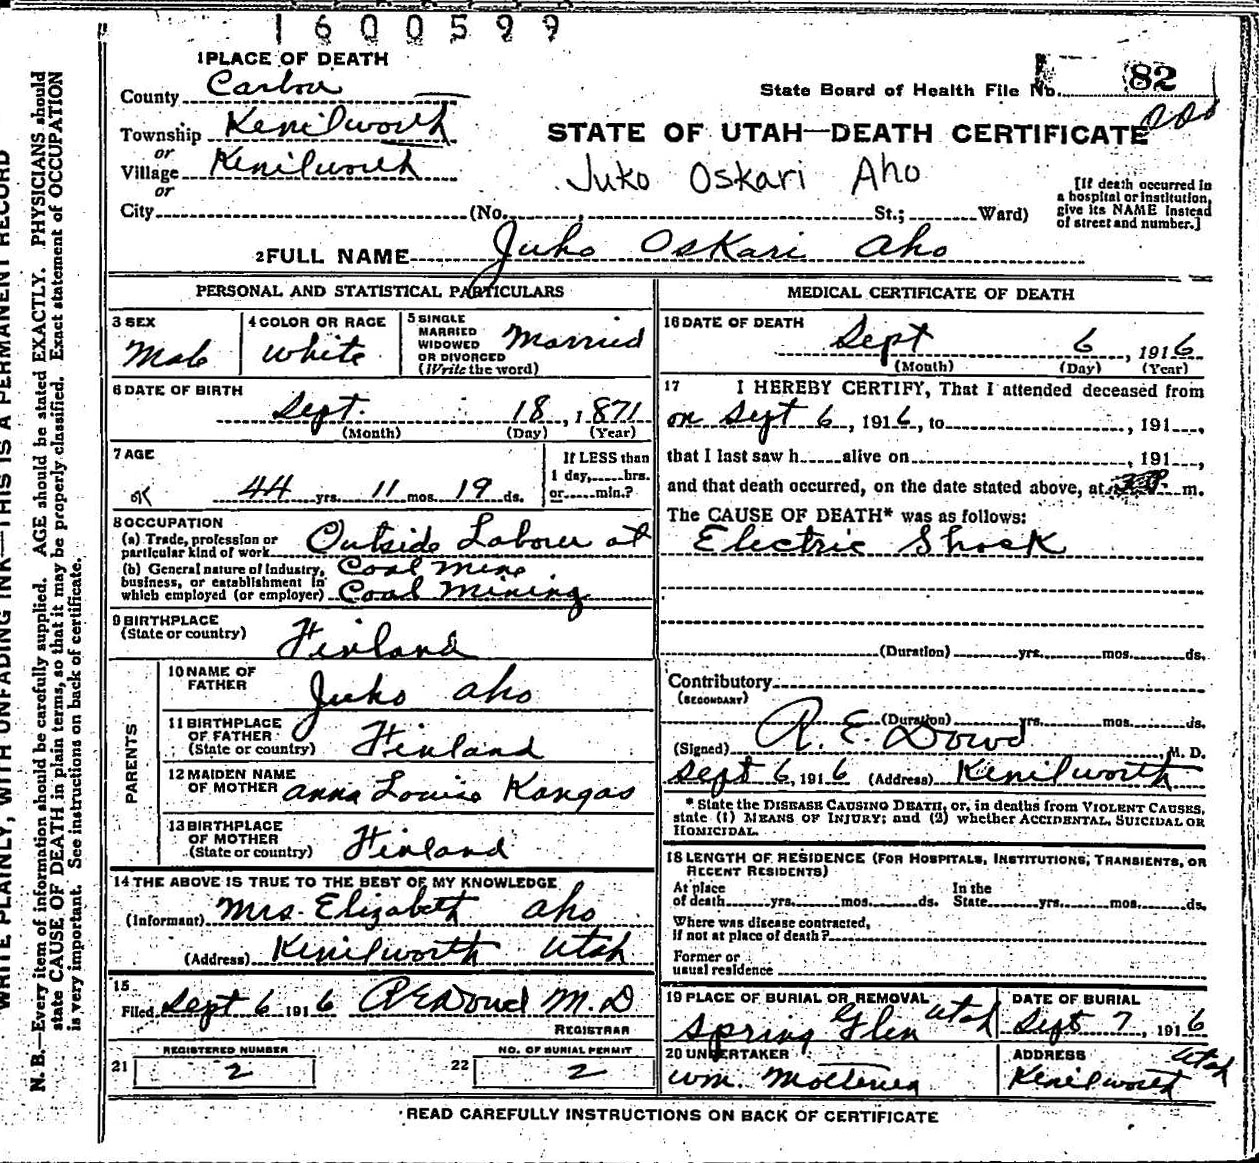 1600599
1 PLACE OF DEATH
County Carbon
State Board of Health File No. 82
Township Kenilworth
STATE OF UTAH—DEATH CERTIFICATE
or
Village Kenilworth
Juko Oskari Aho
or
City (No. , St.; Ward)
[If death occurred in
a hospital or institution,
give its NAME instead
of street and number.]
2 FULL NAME Juho Oskari Aho
PERSONAL AND STATISTICAL PARTICULARS
3 SEX
Male
4 COLOR OR RACE
White
5 SINGLE
MARRIED
WIDOWED
OR DIVORCED
(Write the word)
Married
6 DATE OF BIRTH
Sept. 18, 1871
(Month) (Day) (Year)
7 AGE
44 yrs. 11 mos. 19 ds.
If LESS than
1 day, hrs.
or min.?
8 OCCUPATION
(a) Trade, profession or
particular kind of work Outside Laborer at
Coal Mine
(b) General nature of Industry,
business, or establishment in
which employed (or employer) Coal Mining
9 BIRTHPLACE
(State or country) Finland
PARENTS
10 NAME OF
FATHER Juho Aho
11 BIRTHPLACE
OF FATHER
(State or country) Finland
12 MAIDEN NAME
OF MOTHER Anna Louisa Kangas
13 BIRTHPLACE
OF MOTHER
(State or country) Finland
14 THE ABOVE IS TRUE TO THE BEST OF MY KNOWLEDGE
(Informant) Mrs. Elizabeth Aho
(Address) Kenilworth Utah
15
Filed Sept 6 1916 R E Dowd M. D
REGISTRAR
21 REGISTERED NUMBER
2
22 NO. OF BURIAL PERMIT
2
MEDICAL CERTIFICATE OF DEATH
16 DATE OF DEATH
Sept 6, 1916
(Month) (Day) (Year)
17 I HEREBY CERTIFY, That I attended deceased from
on Sept 6, 1916, to , 191 ,
that I last saw h alive on , 191 ,
and that death occurred, on the date stated above, at m.
The CAUSE OF DEATH* was as follows:
Electric Shock
(Duration) yrs. mos. ds.
Contributory
(SECONDARY)
(Duration) yrs. mos. ds.
(Signed) R. E. Dowd, M. D.
Sept 6, 1916 (Address) Kenilworth
* State the DISEASE CAUSING DEATH, or, in deaths from VIOLENT CAUSES,
state (1) MEANS OF INJURY; and (2) whether ACCIDENTAL, SUICIDAL OR
HOMICIDAL.
18 LENGTH OF RESIDENCE (FOR HOSPITALS, INSTITUTIONS, TRANSIENTS, OR
RECENT RESIDENTS)
At place
of death yrs. mos. ds.
In the
State yrs. mos. ds.
Where was disease contracted,
if not at place of death?
Former or
usual residence
19 PLACE OF BURIAL OR REMOVAL
Spring Glen Utah
DATE OF BURIAL
Sept 7, 1916
20 UNDERTAKER
Wm.
ADDRESS
Kenilworth Utah
READ CAREFULLY INSTRUCTIONS ON BACK OF CERTIFICATE
WRITE PLAINLY, WITH UNFADING INK—THIS IS A PERMANENT RECORD
N. B.—Every item of information should be carefully supplied. AGE should be stated EXACTLY. PHYSICIANS should
state CAUSE OF DEATH in plain terms, so that it may be properly classified. Exact statement of OCCUPATION
is very important. See instructions on back of certificate.